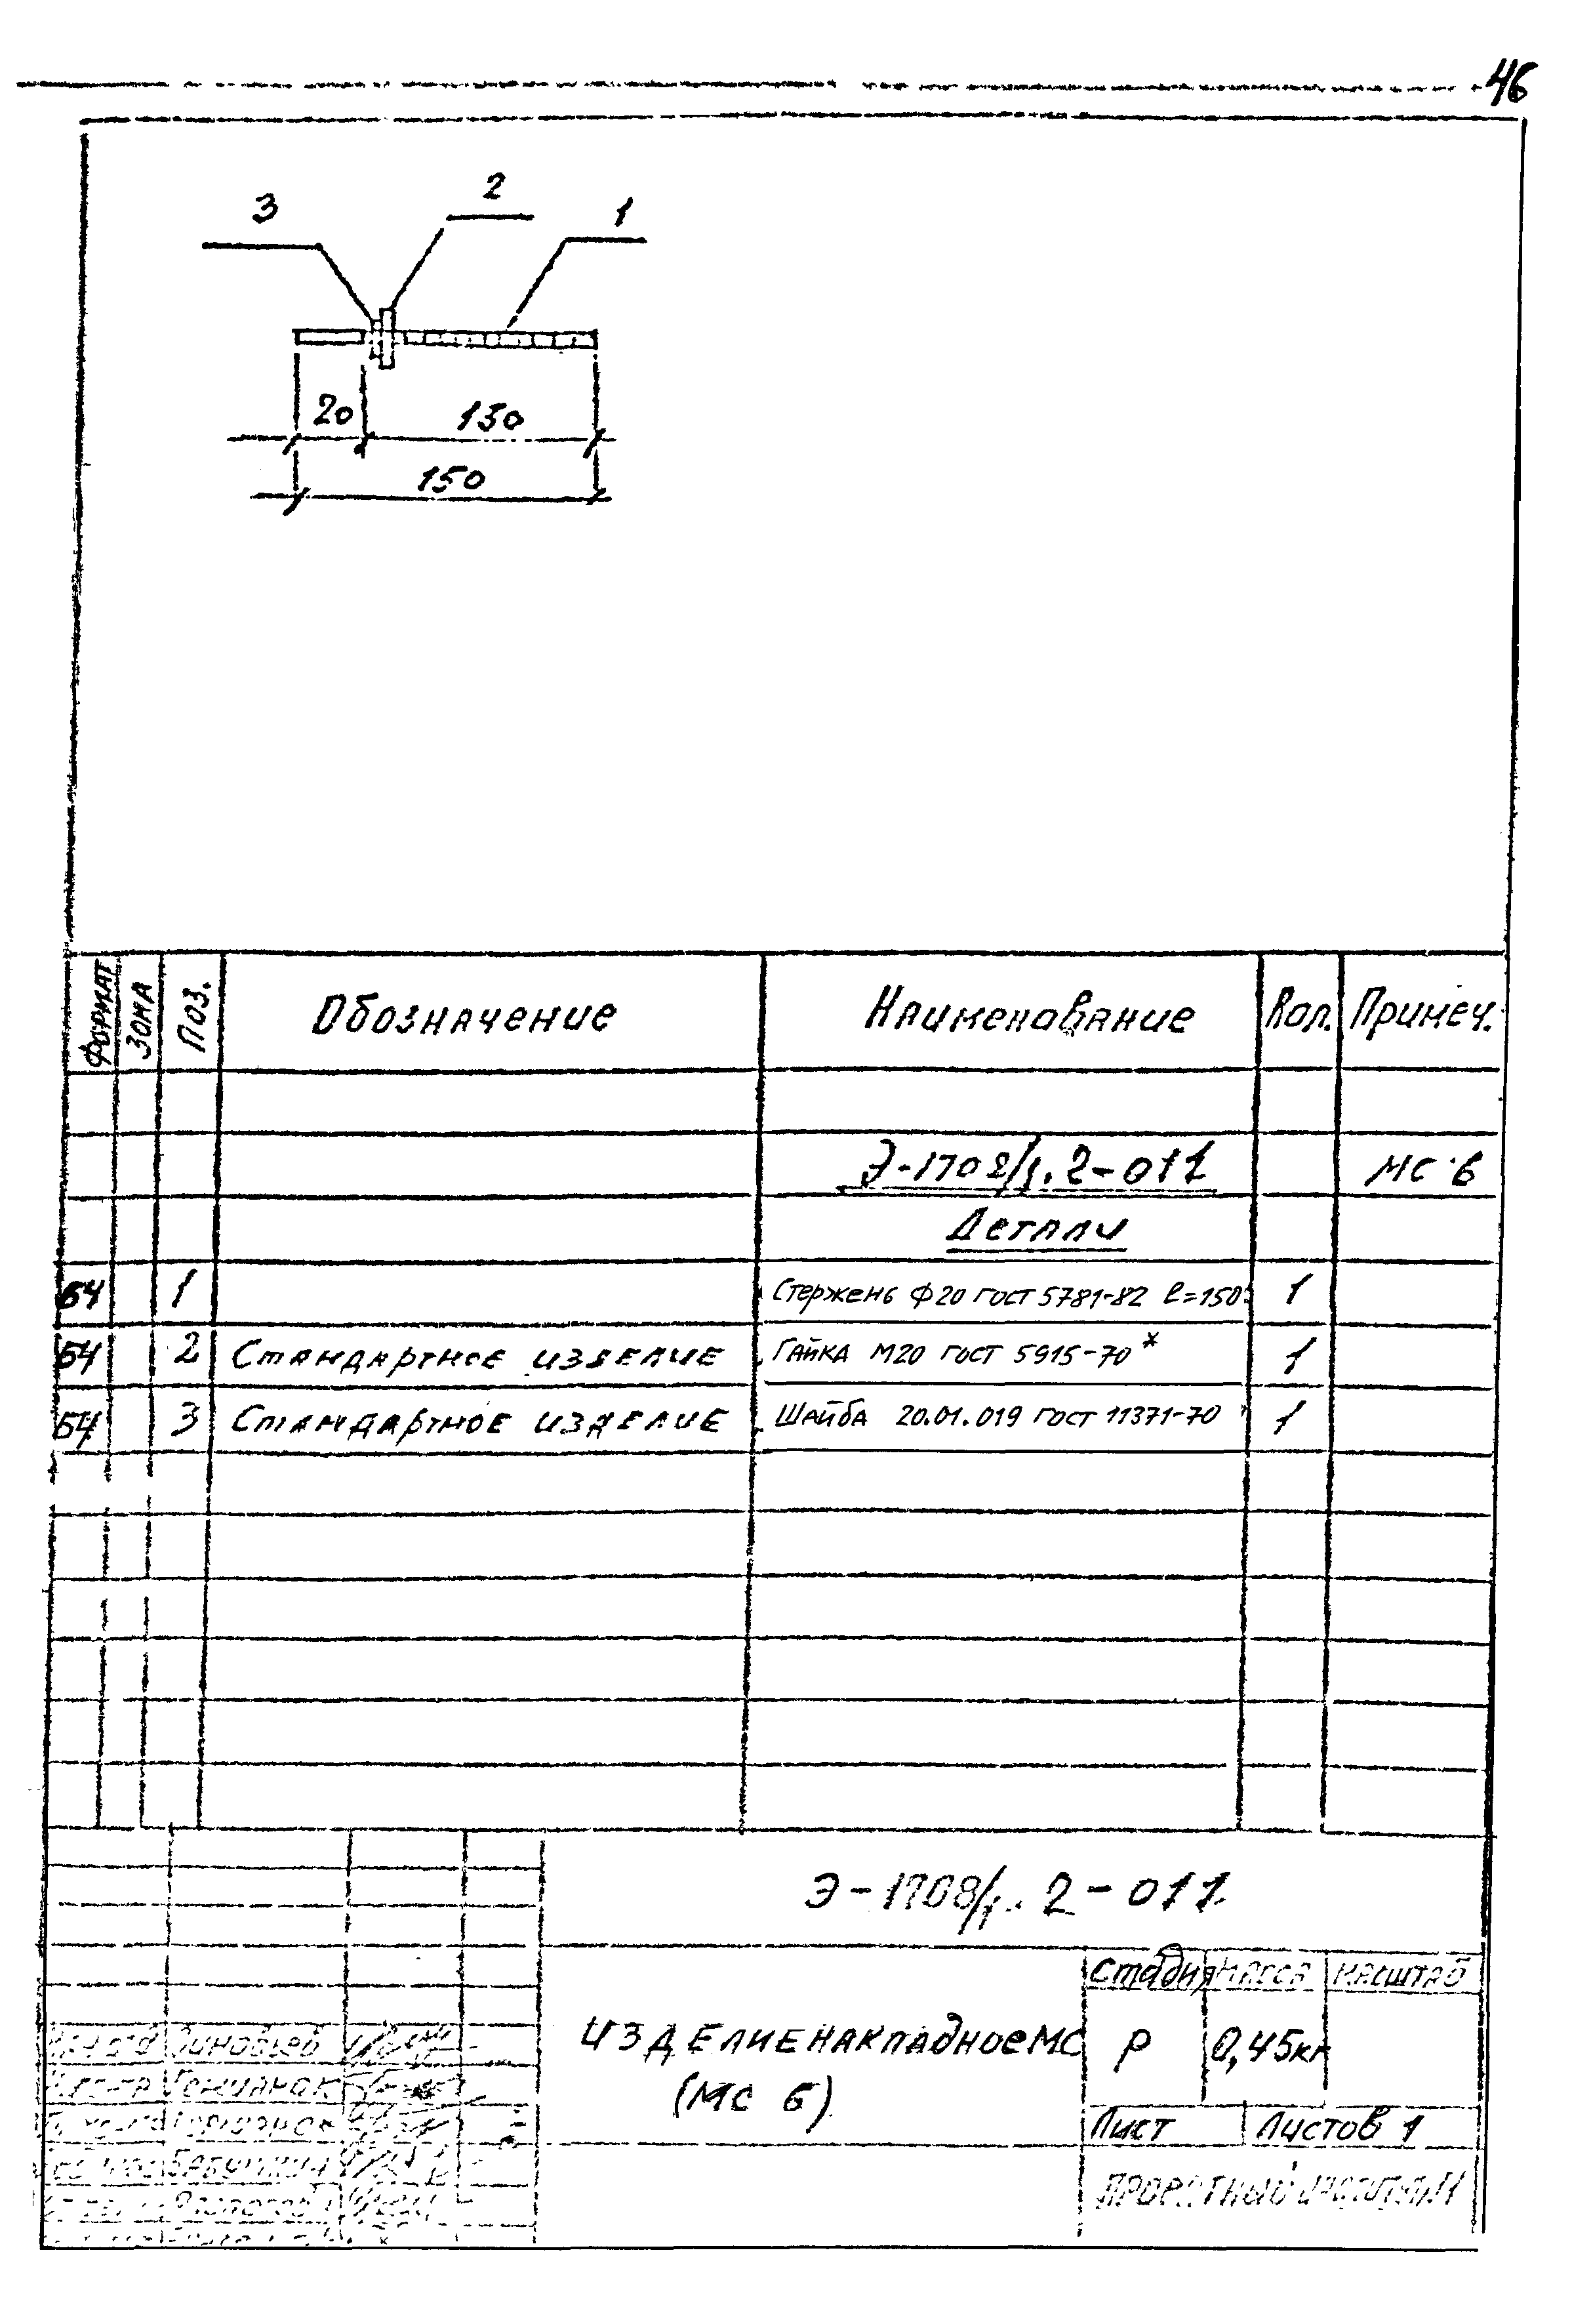 46
3
2
1
20
130
150
Формат Зона Поз. Обозначение Наименование Кол. Примеч.
Э-1708/1.2-011 МС 6
Детали
БЧ 1 Стержень Ф20 ГОСТ 5781-82 ℓ=150 1
БЧ 2 Стандартное изделие Гайка М20 ГОСТ 5915-70* 1
БЧ 3 Стандартное изделие Шайба 20.01.019 ГОСТ 11371-70 1
Э-1708/1.2-011
Стадия Масса Масштаб
Изделие накладное МС
Р 0,45кг
(МС 6)
Лист Листов 1
Зиновьев
Бабушкин
Проектный институт №1